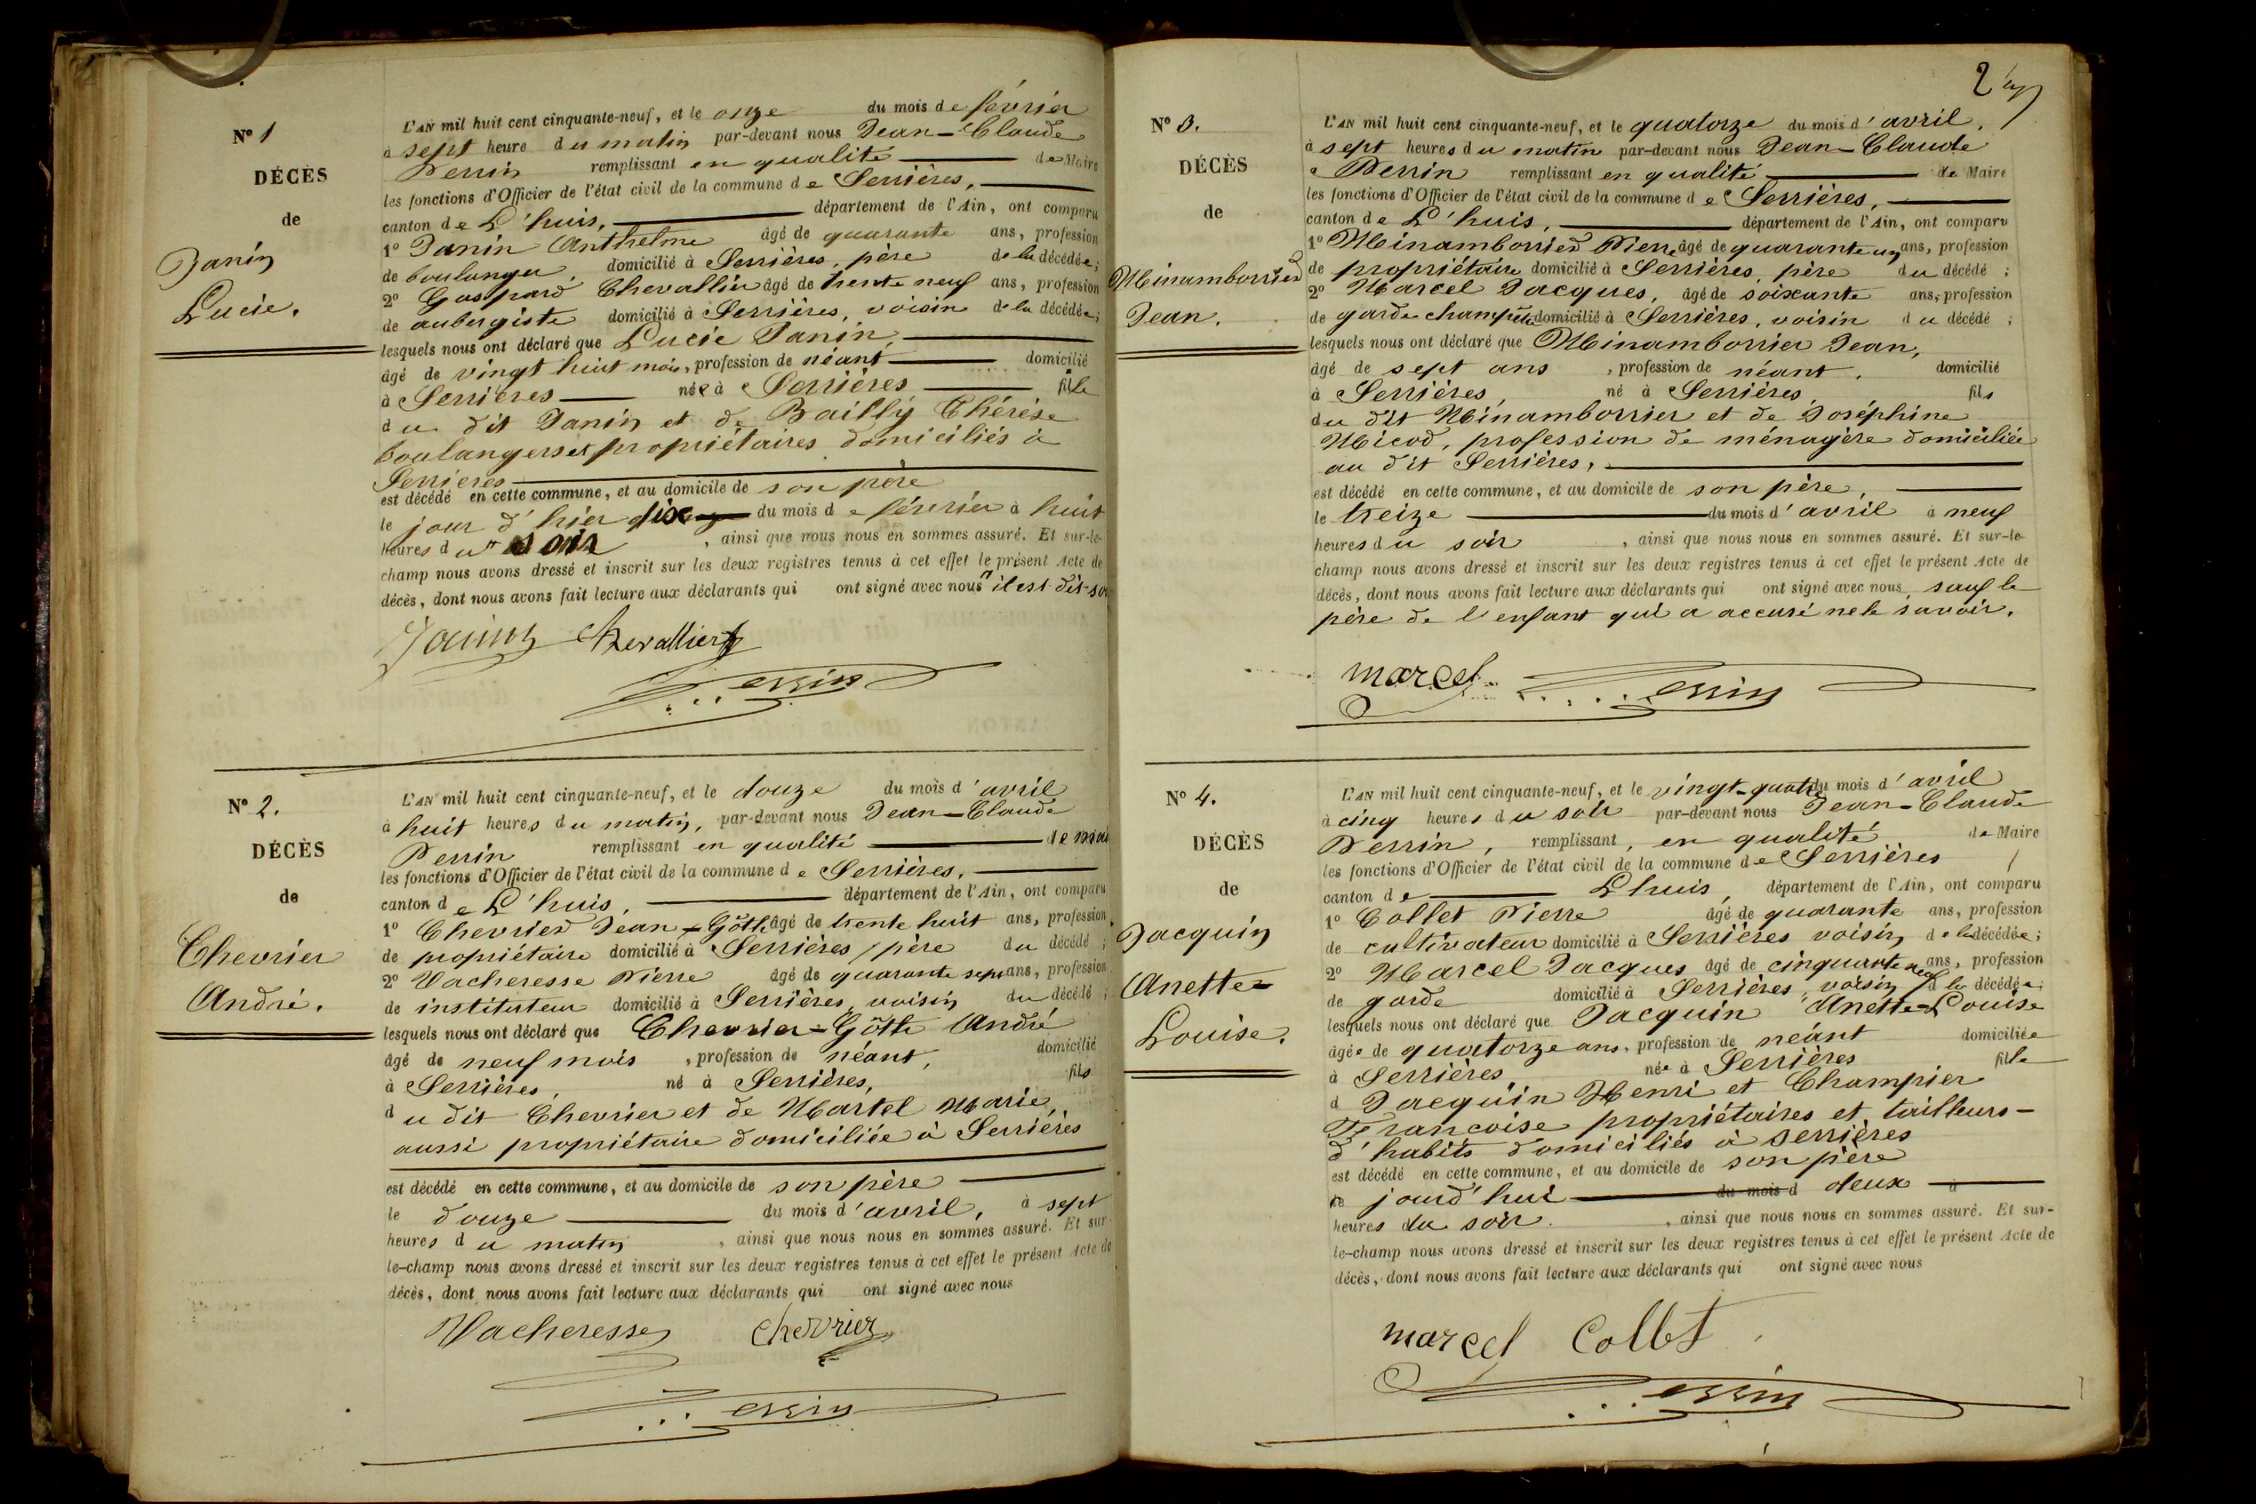 N° 1
DÉCÈS
de
Janin
Lucie.
L'AN mil huit cent cinquante-neuf, et le onze du mois de février
à sept heure du matin par-devant nous Jean-Claude
Perrin remplissant en qualité de Maire
les fonctions d'Officier de l'état civil de la commune de Serrières,
canton de L'huis, département de l'Ain, ont comparu
1° Janin Anthelme âgé de quarante ans, profession
de boulanger, domicilié à Serrières, père de la décédée;
2° Gaspard Chevallier âgé de trente neuf ans, profession
de aubergiste domicilié à Serrières, voisin de la décédée;
lesquels nous ont déclaré que Lucie Janin,
âgé de vingt huit mois, profession de néant domicilié
à Serrières née à Serrières fille
du dit Janin et de Bailly Thérèse
boulangers et propriétaires domiciliés à
Serrières
est décédé en cette commune, et au domicile de son père
le jour d'hier dix du mois de février à huit
heures du soir, ainsi que nous nous en sommes assuré. Et sur-le-
champ nous avons dressé et inscrit sur les deux registres tenus à cet effet le présent Acte de
décès, dont nous avons fait lecture aux déclarants qui ont signé avec nous il est dit soir
Janin Chevallier
Perrin
N° 2.
DÉCÈS
de
Chevrier
André.
L'AN mil huit cent cinquante-neuf, et le douze du mois d'avril
à huit heures du matin, par-devant nous Jean-Claude
Perrin remplissant en qualité de mai
les fonctions d'Officier de l'état civil de la commune de Serrières,
canton de L'huis, département de l'Ain, ont comparu
1° Chevrier Jean-Göth âgé de trente huit ans, profession
de propriétaire domicilié à Serrières, père du décédé;
2° Vacheresse Pierre âgé de quarante sept ans, profession
de instituteur domicilié à Serrières, voisin du décédé;
lesquels nous ont déclaré que Chevrier-Göth André
âgé de neuf mois, profession de néant, domicilié
à Serrières, né à Serrières, fils
du dit Chevrier et de Martel Marie,
aussi propriétaire domiciliée à Serrières
est décédé en cette commune, et au domicile de son père
le douze du mois d'avril, à sept
heures du matin, ainsi que nous nous en sommes assuré. Et sur-
le-champ nous avons dressé et inscrit sur les deux registres tenus à cet effet le présent Acte de
décès, dont nous avons fait lecture aux déclarants qui ont signé avec nous
Vacheresse Chevrier
Perrin
2
N° 3.
DÉCÈS
de
Minamborrier
Jean.
L'AN mil huit cent cinquante-neuf, et le quatorze du mois d'avril,
à sept heures du matin par-devant nous Jean-Claude
Perrin remplissant en qualité de Maire
les fonctions d'Officier de l'état civil de la commune de Serrières,
canton de L'huis, département de l'Ain, ont comparu
1° Minamborrier Pierre âgé de quarante un ans, profession
de propriétaire domicilié à Serrières père du décédé;
2° Marcel Jacques, âgé de soixante ans, profession
de garde champêtre domicilié à Serrières, voisin du décédé;
lesquels nous ont déclaré que Minamborrier Jean,
âgé de sept ans, profession de néant, domicilié
à Serrières, né à Serrières, fils
du dit Minamborrier et de Joséphine
Micod, profession de ménagère domiciliée
au dit Serrières,
est décédé en cette commune, et au domicile de son père,
le treize du mois d'avril à neuf
heures du soir, ainsi que nous nous en sommes assuré. Et sur-le-
champ nous avons dressé et inscrit sur les deux registres tenus à cet effet le présent Acte de
décès, dont nous avons fait lecture aux déclarants qui ont signé avec nous sauf le
père de l'enfant qui a accusé ne le savoir.
marcel Perrin
N° 4.
DÉCÈS
de
Jacquin
Anette-
Louise.
L'AN mil huit cent cinquante-neuf, et le vingt-quatre du mois d'avril
à cinq heures du soir par-devant nous Jean-Claude
Perrin, remplissant, en qualité de Maire
les fonctions d'Officier de l'état civil de la commune de Serrières
canton de Lhuis, département de l'Ain, ont comparu
1° Collet Pierre âgé de quarante ans, profession
de cultivateur domicilié à Serrières voisin de la décédée;
2° Marcel Jacques âgé de cinquante neuf ans, profession
de garde domicilié à Serrières, voisin de la décédée;
lesquels nous ont déclaré que Jacquin Anette-Louise
âgée de quatorze ans, profession de néant domiciliée
à Serrières née à Serrières fille
d Jacquin Henri et Champier
Françoise propriétaires et tailleurs-
d'habits domiciliés à Serrières
est décédé en cette commune, et au domicile de son père
le jourd'hui du mois d deux à
heures du soir, ainsi que nous nous en sommes assuré. Et sur-
le-champ nous avons dressé et inscrit sur les deux registres tenus à cet effet le présent Acte de
décès, dont nous avons fait lecture aux déclarants qui ont signé avec nous
marcel Collet
Perrin